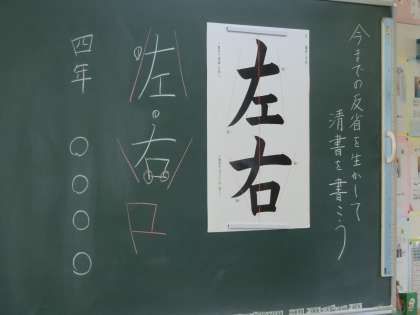 今までの反省を生かして
清書を書こう
左右
左・右
口
四年 〇〇〇〇